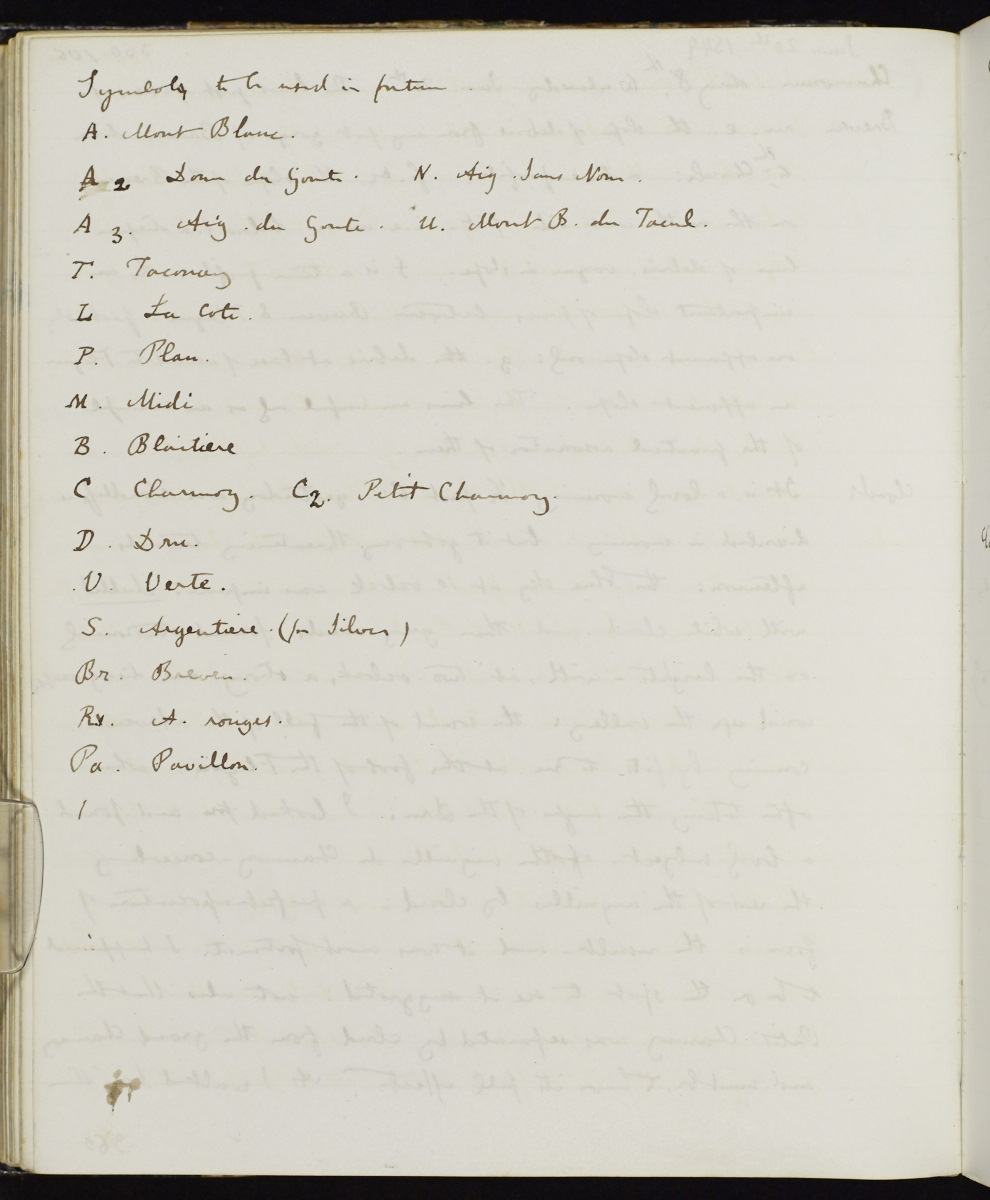 Symbols to be used in future.
A. Mont Blanc.
A 2 Dome du Goute. N. Aig Sans Nom.
A 3. Aig. du Goute. U. Mont B. du Tacul.
T. Taconay
L La Cote.
P. Plan.
M. Midi
B. Blaitiere
C Charmoz. C2. Petit Charmoz.
D. Dru.
V. Verte.
S. Argentiere. (for Silver)
Br. Breven.
Rx. A. rouges.
Pa. Pavillon.